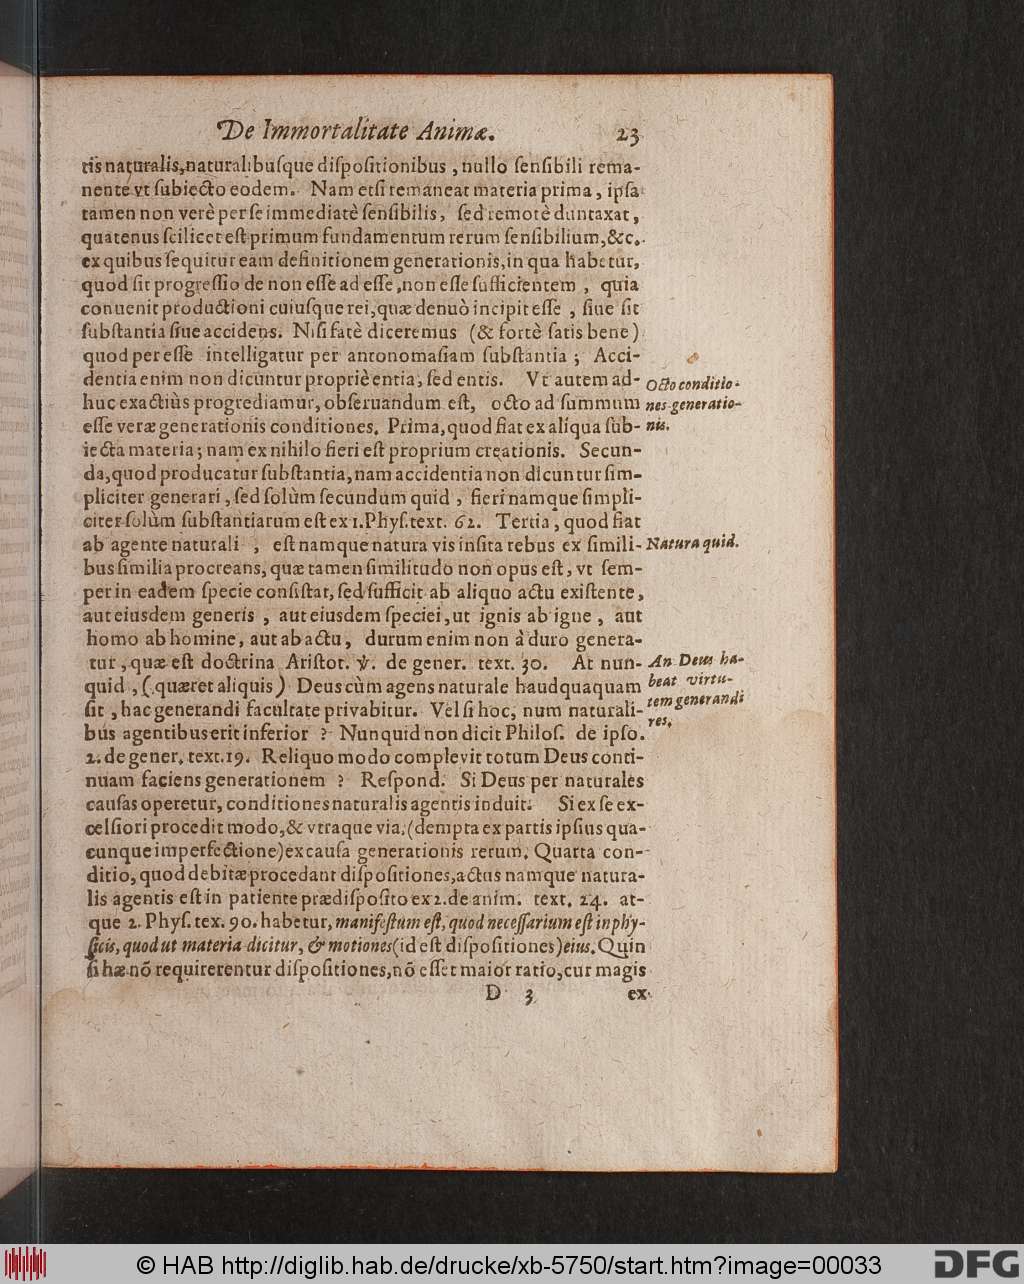 De Immortalitate Animæ. 23
tis naturalis, naturalibusque dispositionibus, nullo sensibili rema-
nente vt subiecto eodem. Nam etsi remaneat materia prima, ipsa
tamen non verè per se immediatè sensibilis, sed remotè duntaxat,
quatenus scilicet est primum fundamentum rerum sensibilium, &c.
ex quibus sequitur eam definitionem generationis, in qua habetur,
quod sit progressio de non esse ad esse, non esse sufficientem, quia
conuenit productioni cuiusque rei, quæ denuò incipit esse, siue sit
substantia siue accidens. Nisi fatè diceremus (& fortè satis bene)
quod per esse intelligatur per antonomasiam substantia; Acci-
dentia enim non dicuntur propriè entia, sed entis. Vt autem ad-
huc exactiùs progrediamur, obseruandum est, octo ad summum
esse veræ generationis conditiones. Prima, quod fiat ex aliqua sub-
iecta materia; nam ex nihilo fieri est proprium creationis. Secun-
da, quod producatur substantia, nam accidentia non dicuntur sim-
pliciter generari, sed solùm secundum quid, fieri namque simpli-
citer solùm substantiarum est ex 1. Phys. text. 62. Tertia, quod fiat
ab agente naturali, est namque natura vis insita rebus ex simili-
bus similia procreans, quæ tamen similitudo non opus est, vt sem-
per in eadem specie consistat, sed sufficit ab aliquo actu existente,
aut eiusdem generis, aut eiusdem speciei, ut ignis ab igne, aut
homo ab homine, aut ab actu, durum enim non à duro genera-
tur, quæ est doctrina Aristot. de gener. text. 30. At nun-
quid, (quæret aliquis) Deus cùm agens naturale haudquaquam
sit, hac generandi facultate privabitur. Vel si hoc, num naturali-
bus agentibus erit inferior? Nunquid non dicit Philos. de ipso.
2. de gener. text. 19. Reliquo modo complevit totum Deus conti-
nuam faciens generationem? Respond. Si Deus per naturales
causas operetur, conditiones naturalis agentis induit. Si ex se ex-
celsiori procedit modo, & vtraque via, (dempta ex partis ipsius qua-
cunque imperfectione) ex causa generationis rerum. Quarta con-
ditio, quod debitæ procedant dispositiones, actus namque natura-
lis agentis est in patiente prædisposito ex 2. de anim. text. 24. at-
que 2. Phys. tex. 90. habetur, manifestum est, quod necessarium est in phy-
sicis, quod ut materia dicitur, & motiones (id est dispositiones) eius. Quin
si hæ nõ requirerentur dispositiones, nõ esset maior ratio, cur magis
D 3 ex
Octo conditio-
nes generatio-
nis.
Natura quid.
An Deus ha-
beat virtu-
tem generandi
res.
© HAB http://diglib.hab.de/drucke/xb-5750/start.htm?image=00033
DFG